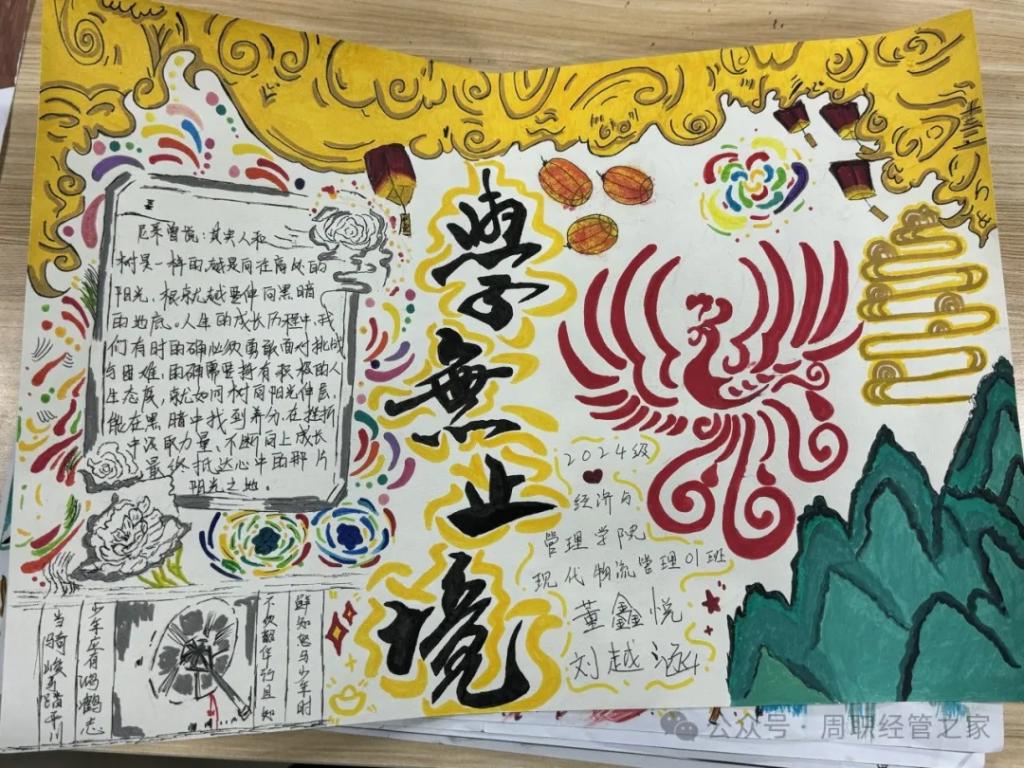 尼采曾说：其实人和
树是一样的，越是向往高处的
阳光，根就越要伸向黑暗
的地底。人生的成长历程中，我
们有时的确必须勇敢面对挑战
与困难，的确需要拥有积极的人
生态度，就如同树向阳光伸展，
能在黑暗中找到养分，在挫折
中汲取力量，不断向上成长
最终抵达心中的那片
阳光之地。
學
無
止
境
2024级
经济与
管理学院
现代物流管理01班
董鑫悦
刘越
鲜知怒马少年时
不
且知
少年应有鸿鹄志
当骑骏马踏平川
公众号·周职经管之家